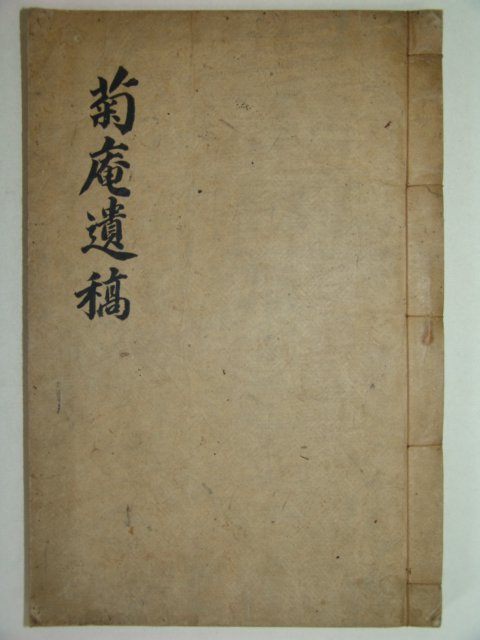 菊庵遺稿